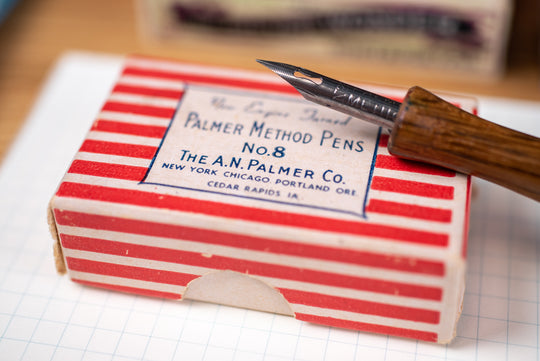 Palmer Method Pens
No. 8
The A.N. Palmer Co.
New York Chicago Portland Ore.
Cedar Rapids Ia.